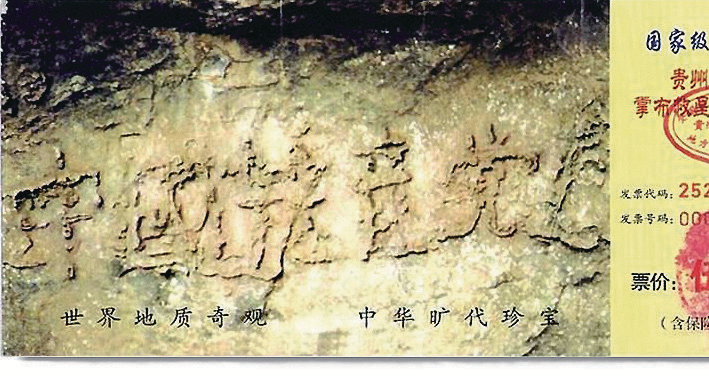 中国共产党
世界地质奇观 中华旷代珍宝
国家级
贵州
掌布救星
发票代码: 252
发票号码: 000
票价:
(含保险